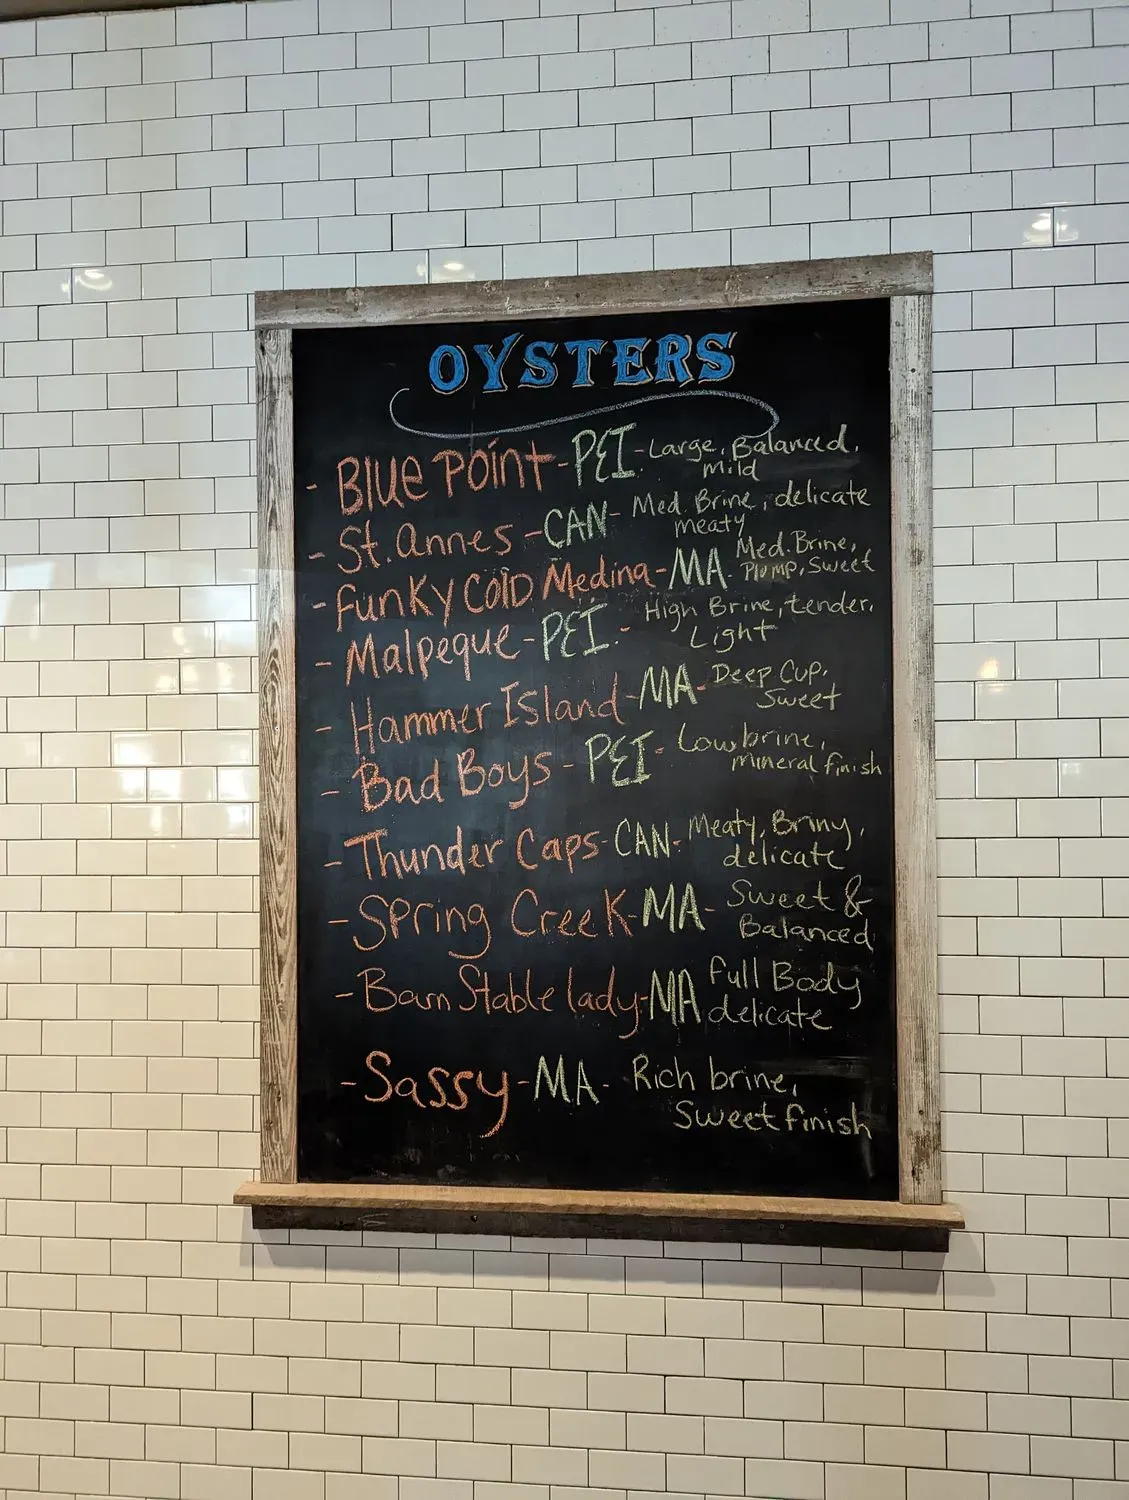 OYSTERS
- Blue Point - PEI - Large, Balanced, mild
- St. Annes - CAN - Med. Brine, delicate meaty
- Funky Cold Medina - MA - Med. Brine, Plump, Sweet
- Malpeque - PEI. - High Brine, tender, Light
- Hammer Island - MA - Deep Cup, Sweet
- Bad Boys - PEI - Low brine, mineral finish
- Thunder Caps - CAN - Meaty, Briny, delicate
- Spring Creek - MA - Sweet & Balanced
- Barn Stable lady - MA full Body delicate
- Sassy - MA - Rich brine, Sweet finish